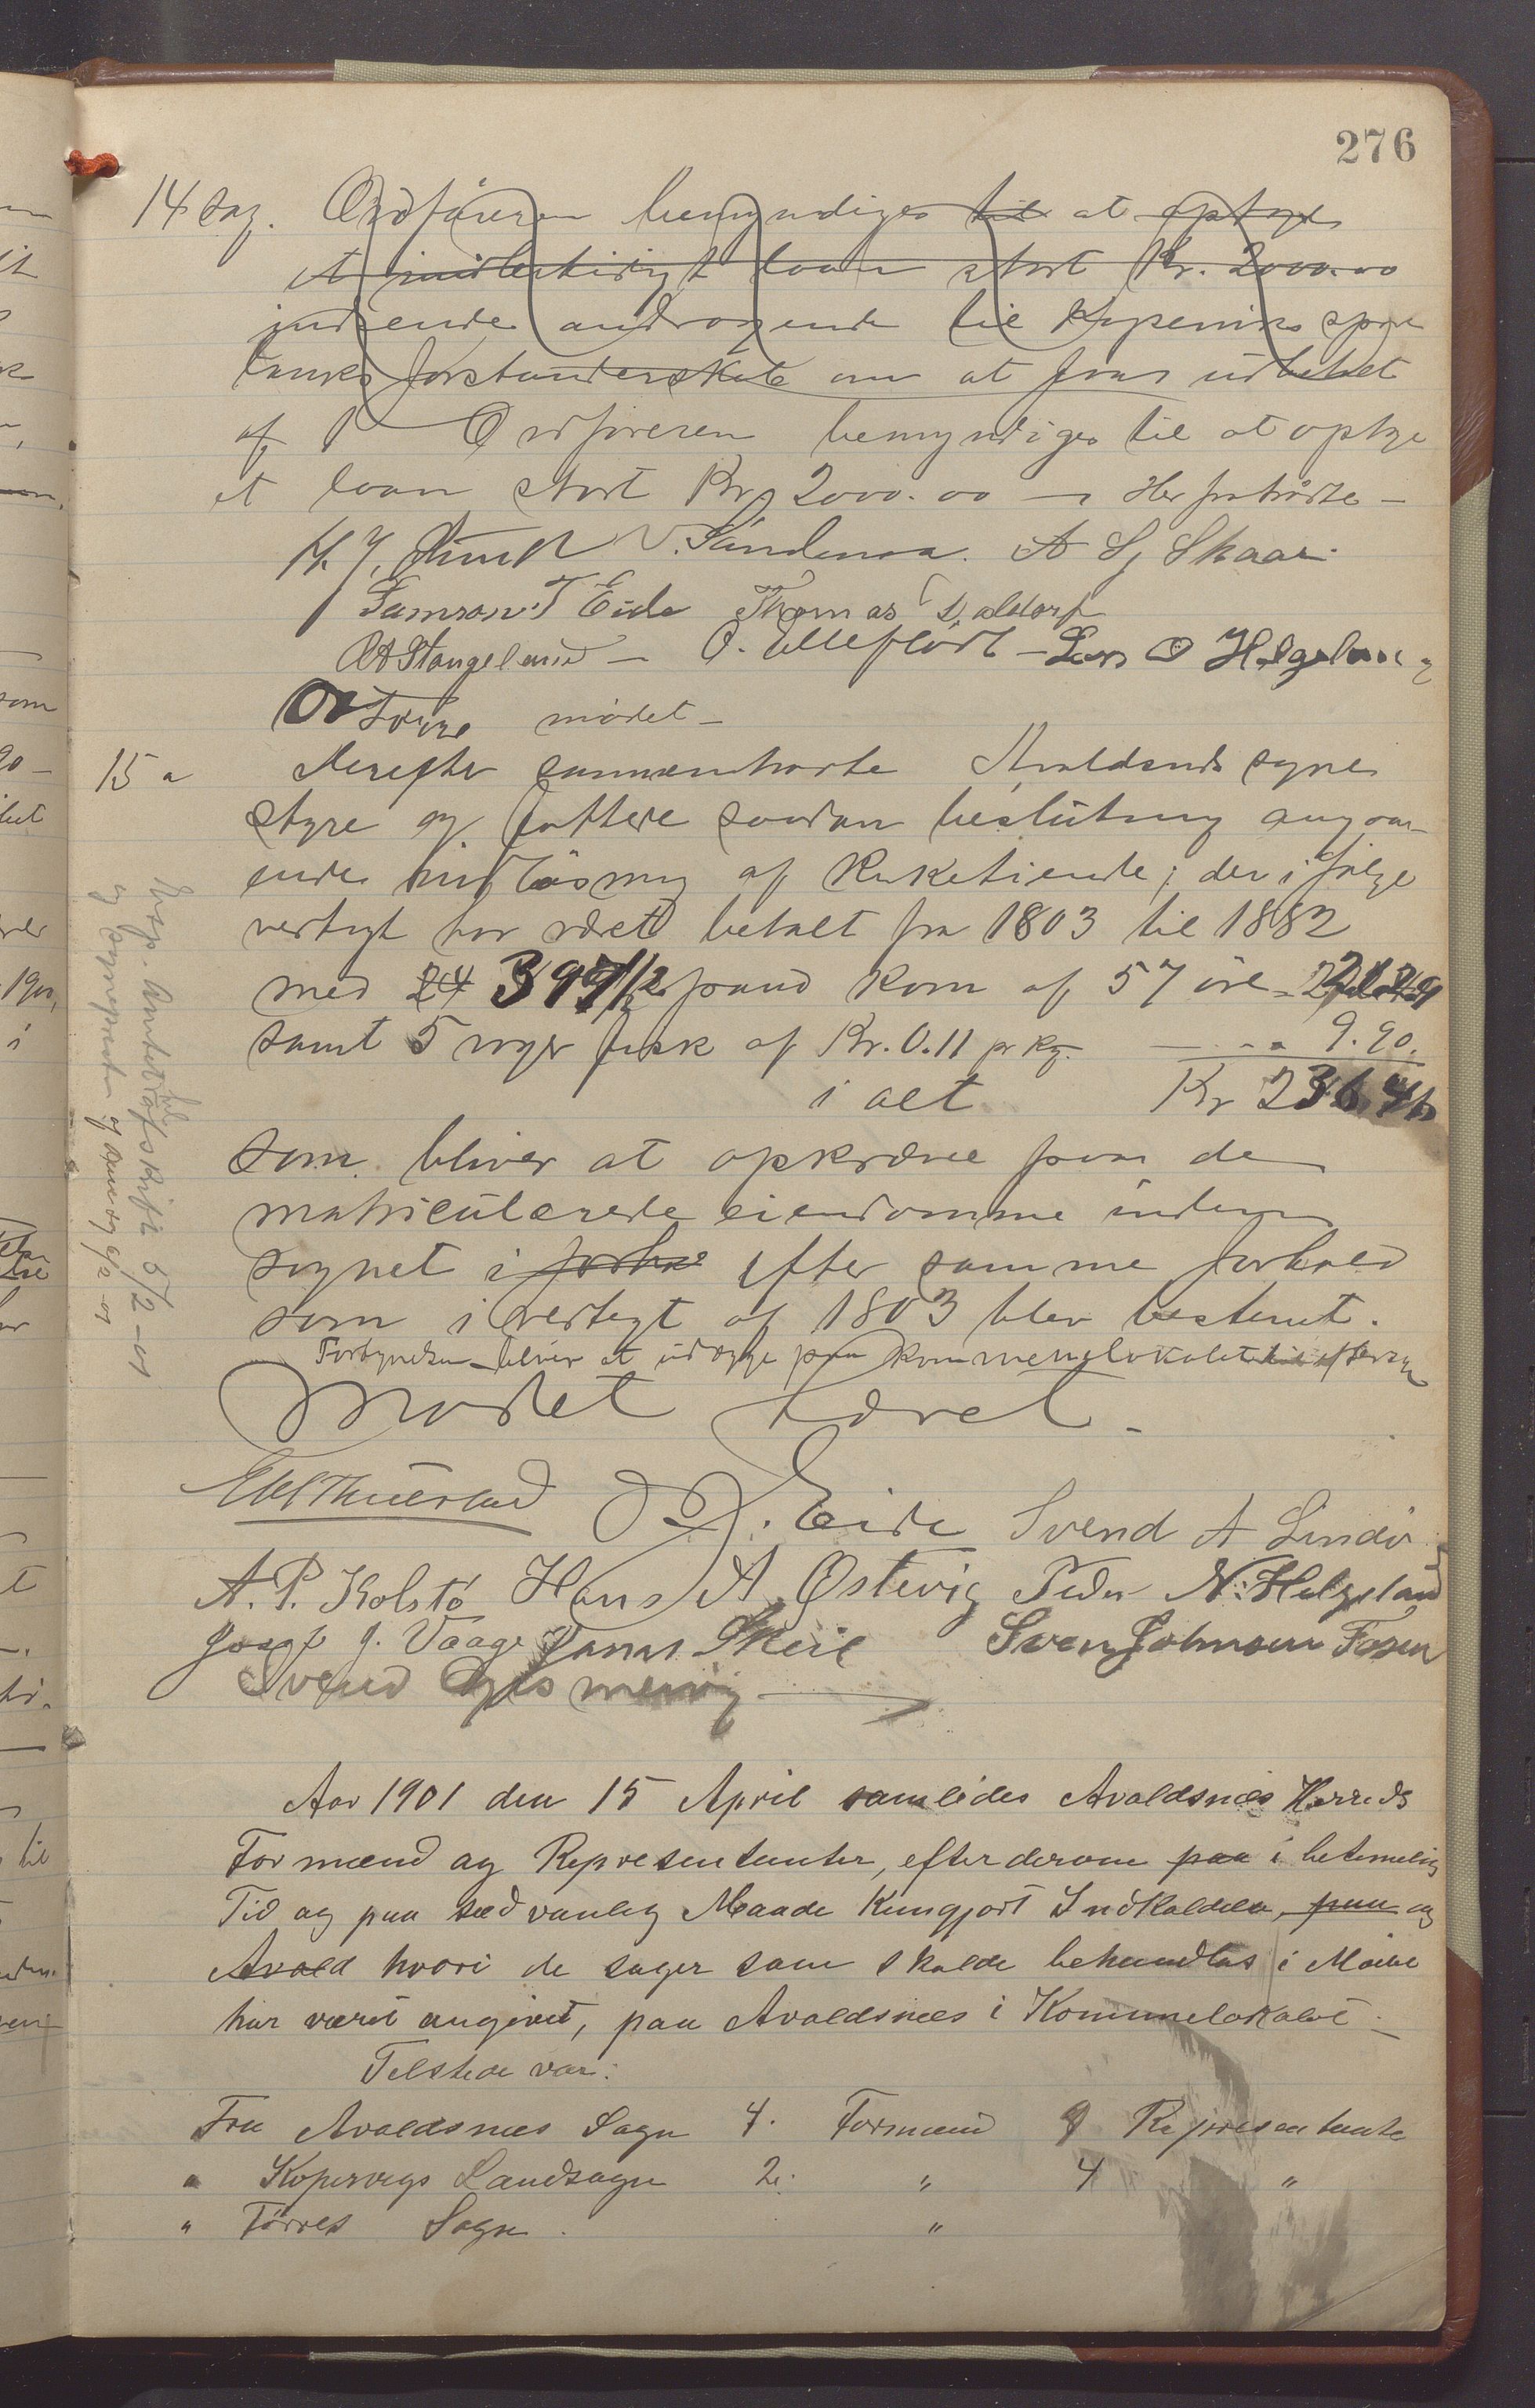 276
14 sag. Ordføreren bemyndiges til at optage
et midlertidigt laan stort Kr. 2000.00
indsende andragende til Kopervik spare
banks forstanderskab om at faar udbetalt
af Ordføreren bemyndiges til at optage
et laan stort Kr 2000.00 — Her fratrådte —
V. Sandenaa. A Sj Skaar.
Samson T Eide Thomas
O A Stangeland — O. Ulleflöt — Lars O Helgeland
møtet —
15 " Derefter sammentraatte Avaldsnæs sogne
styre og fattede saadan beslutning angaa-
ende indløsning af Kirketiende; der ifølge
vertegt har været betalt fra 1803 til 1882
med 24 397 1/2 pund korn af 57 øre
samt 5 voger fisk af Kr. 0.11 pr kg. — " " 9.90.
i alt Kr 236.46
som bliver at opkræve paa de
matriculerede eiendomme inden
sognet i forhol efter samme forhold
som i vertegt af 1803 blev bestemt.
Fortegnelsen bliver at udlægge paa kommunelokalet til eftersyn
Mødet hævet.
Eide Svend A Lindø
A. P. Kolstø Hans A Østevig Peder N. Helgeland
Josef J. Vaage Jonas Skeie Sven Johnsen Fosen
Svend
Aar 1901 den 15 April samledes Avaldsnæs Herreds
Formænd og Representanter, efter derom paa i betimelig
Tid og paa sædvanlig Maade Kungjort Indkaldelse, paa og
Avald hvori de sager som skulde behandles i Mødet
har været angivet, paa Avaldsnæs i Kommunelokalet —
Tilstede var:
Fra Avaldsnæs Sogn 4. Formænd 9 Representante
" Kopervigs Landsogn 2. " 4 "
" Førres Sogn. "